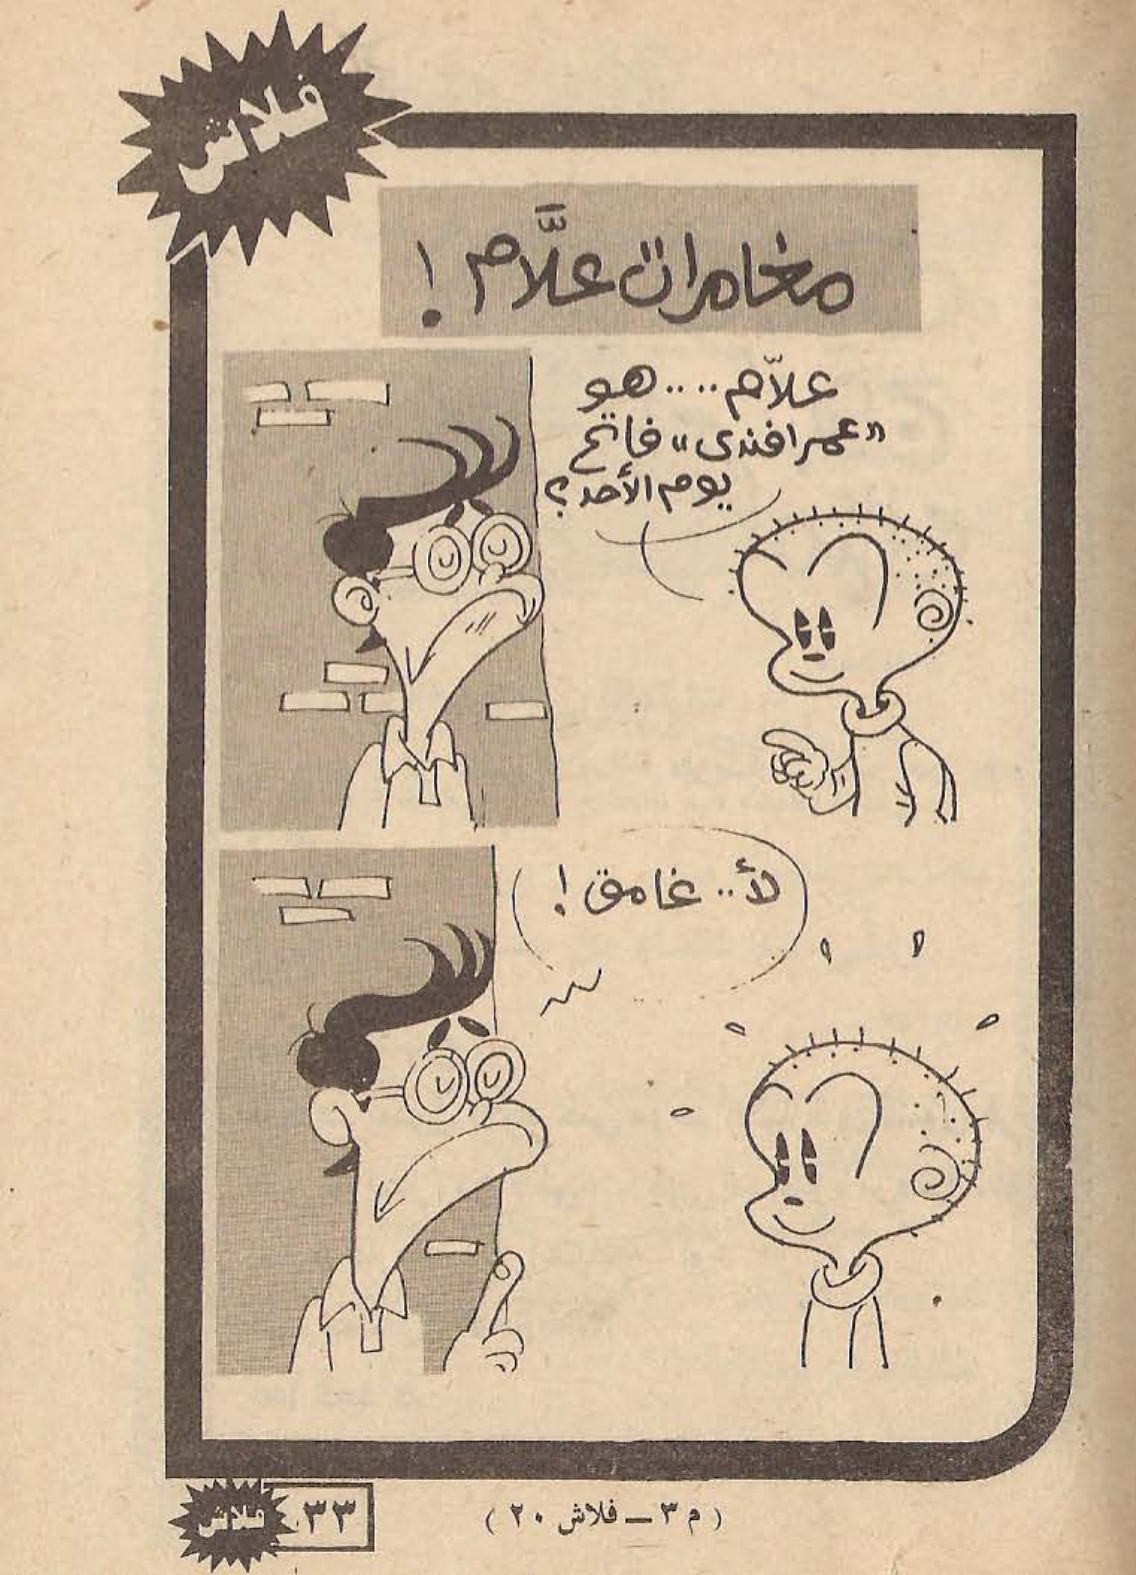 فلاش
مغامرات علَّام !
علاّم .... هو
"عمر افندى" فاتح
يوم الأحد ؟
لأ .. غامق !
( م ٣ ـ فلاش ٢٠ )
٣٣
فلاش